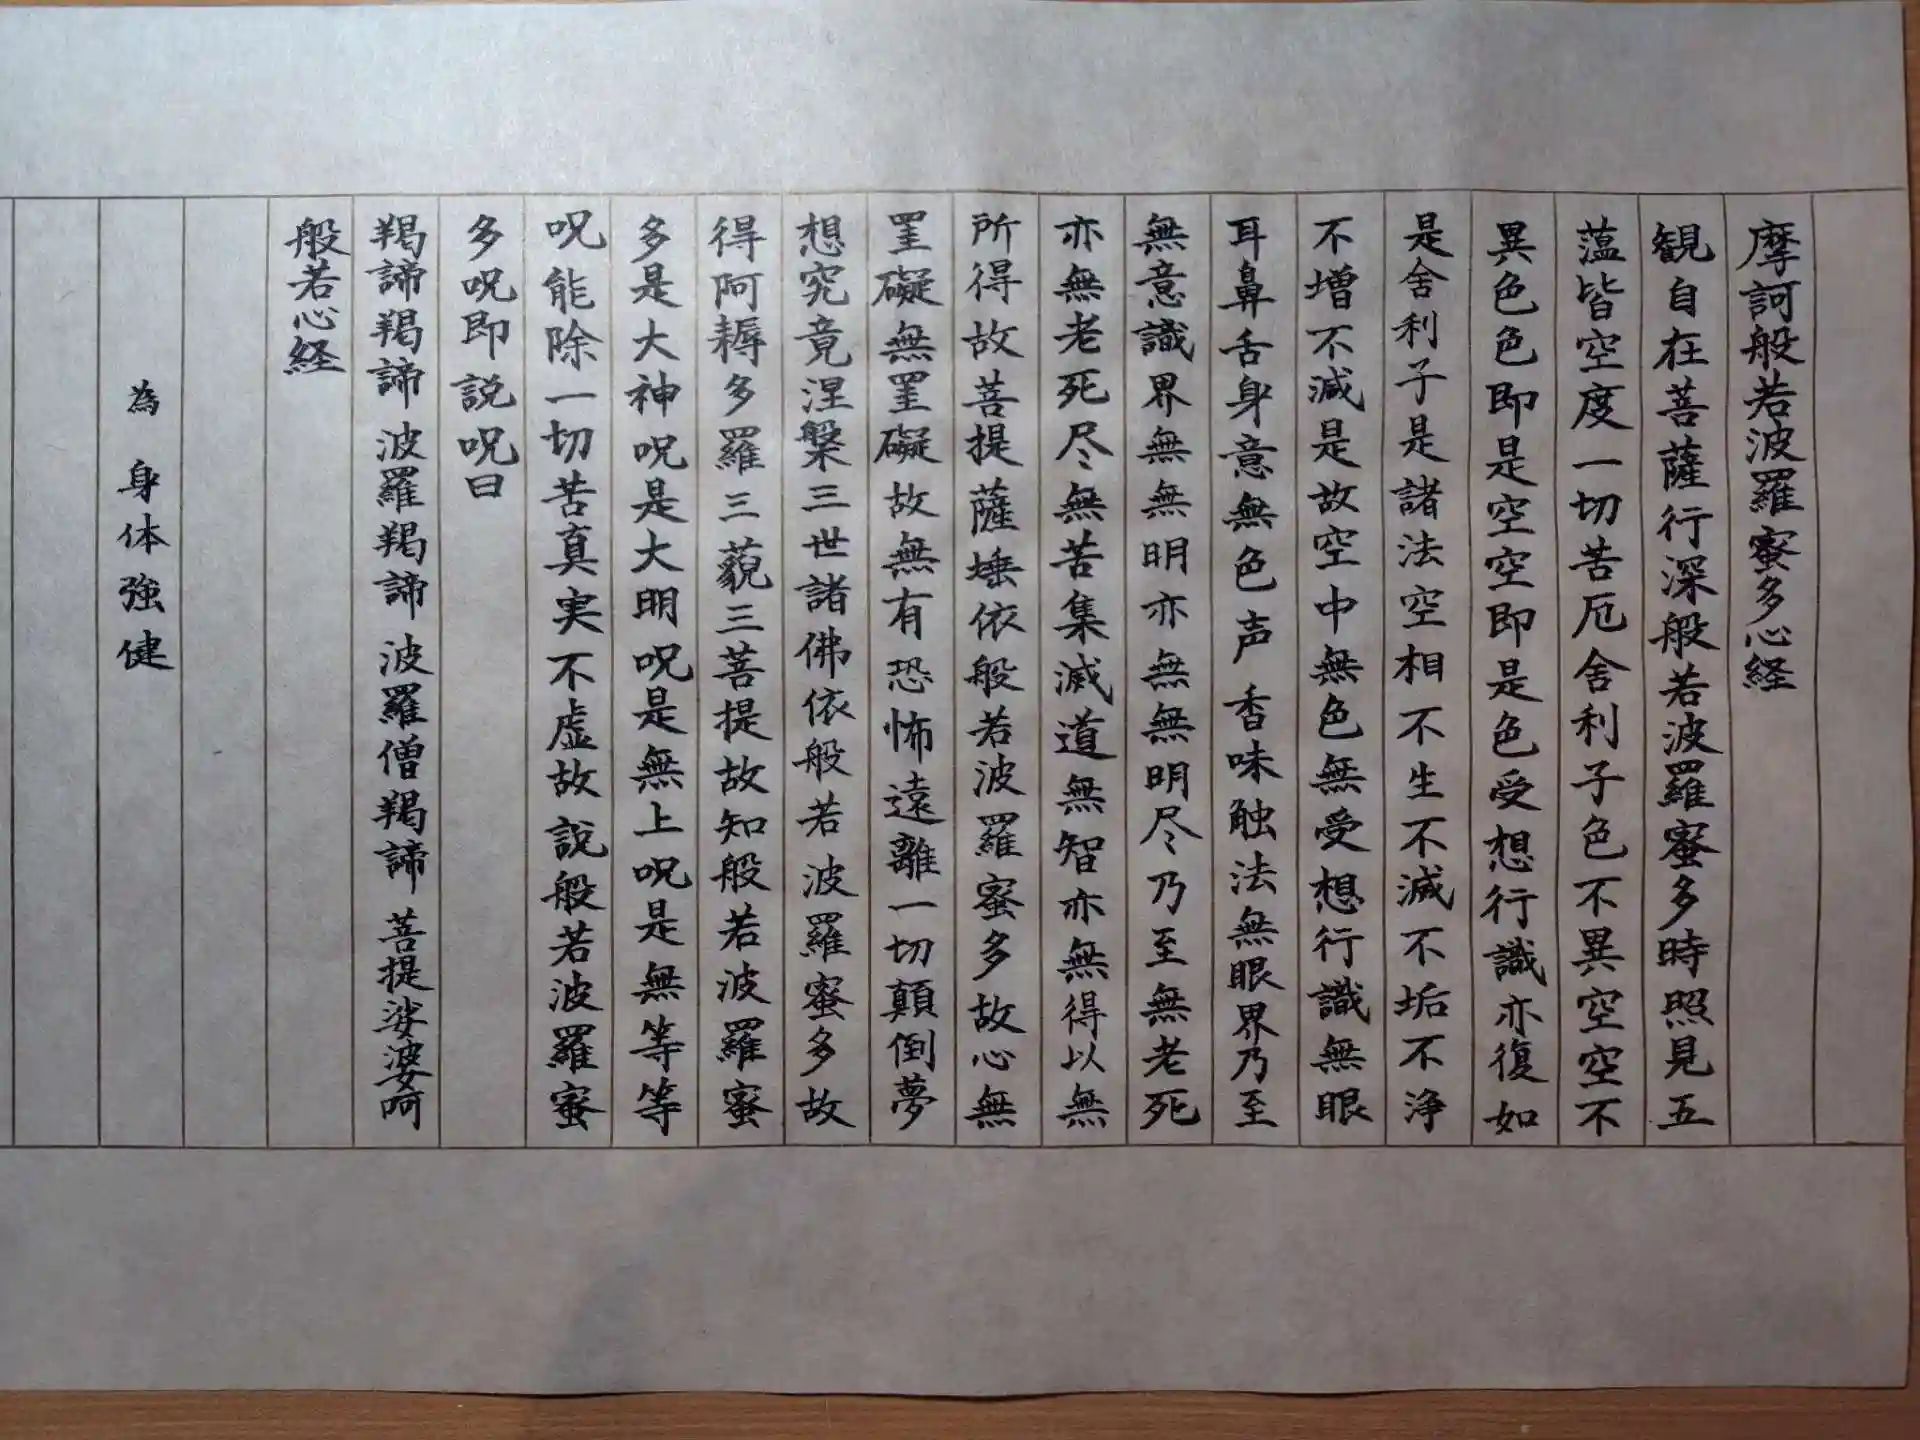 摩訶般若波羅蜜多心経
観自在菩薩行深般若波羅蜜多時照見五
薀皆空度一切苦厄舎利子色不異空空不
異色色即是空空即是色受想行識亦復如
是舎利子是諸法空相不生不滅不垢不浄
不増不減是故空中無色無受想行識無眼
耳鼻舌身意無色声香味触法無眼界乃至
無意識界無無明亦無無明尽乃至無老死
亦無老死尽無苦集滅道無智亦無得以無
所得故菩提薩埵依般若波羅蜜多故心無
罣礙無罣礙故無有恐怖遠離一切顛倒夢
想究竟涅槃三世諸佛依般若波羅蜜多故
得阿耨多羅三藐三菩提故知般若波羅蜜
多是大神呪是大明呪是無上呪是無等等
呪能除一切苦真実不虚故説般若波羅蜜
多呪即説呪曰
羯諦羯諦波羅羯諦波羅僧羯諦菩提娑婆呵
般若心経
為身体強健